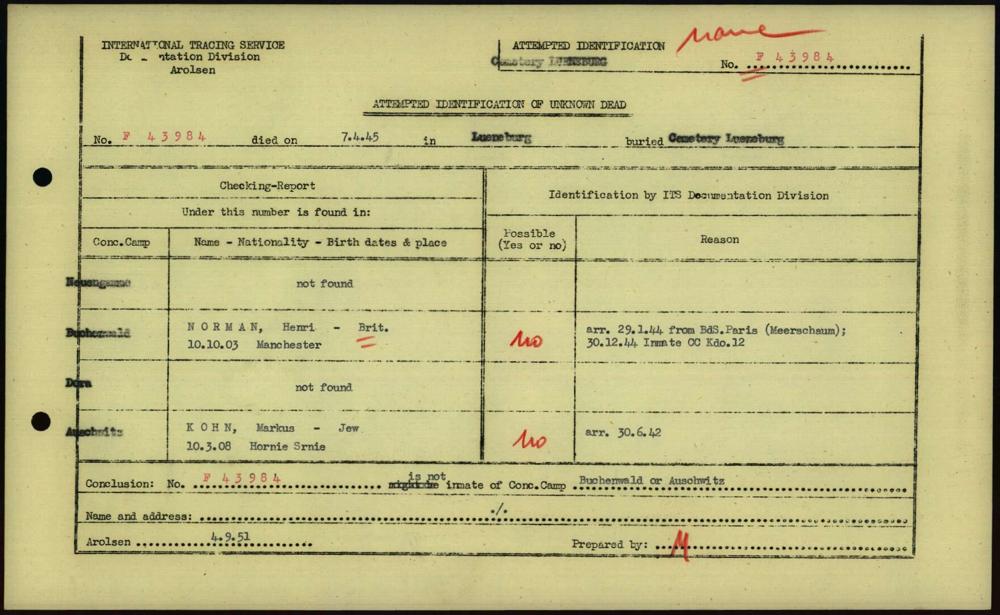 INTERNATIONAL TRACING SERVICE
Documentation Division
Arolsen
ATTEMPTED IDENTIFICATION
Cemetery LUENEBURG
No. F 43984
ATTEMPTED IDENTIFICATION OF UNKNOWN DEAD
No. F 43984 died on 7.4.45 in Lueneburg buried Cemetery Lueneburg
Checking-Report
Identification by ITS Documentation Division
Under this number is found in:
Conc.Camp
Name - Nationality - Birth dates & place
Possible
(Yes or no)
Reason
Neuengamme
not found
Buchenwald
NORMAN, Henri - Brit.
10.10.03 Manchester
no
arr. 29.1.44 from BdS.Paris (Meerschaum);
30.12.44 Inmate CC Kdo.12
Dora
not found
Auschwitz
KOHN, Markus - Jew
10.3.08 Hornie Srnie
no
arr. 30.6.42
Conclusion: No. F 43984 is not inmate of Conc.Camp Buchenwald or Auschwitz
Name and address: ./.
Arolsen 4.9.51
Prepared by: M